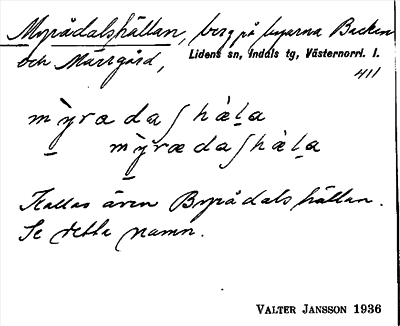 Myrådalshällan, berg på byarna Backen
och Märrgård, Lidens sn, Indals tg, Västernorrl. l.
411
mỳrædaʃhàḷa
mỳrædaʃhàḷa
Kallas även Byrådalshällan.
Se detta namn.
VALTER JANSSON 1936